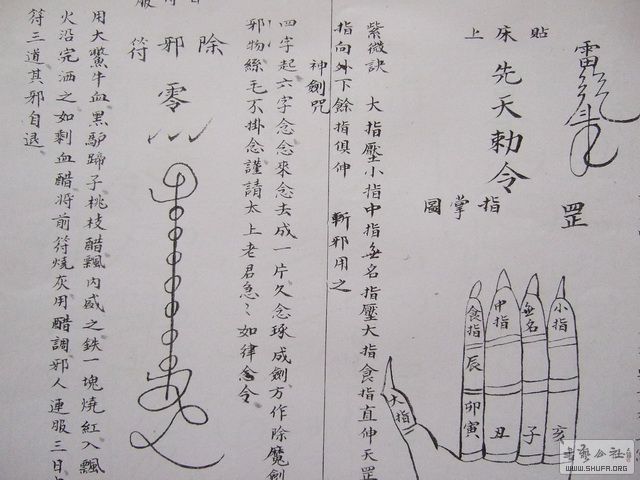 貼床上
先天勅令
罡
指掌圖
食指
中指
無名
小指
大指
辰
卯
寅
丑
子
亥
紫微訣　大指壓小指中指無名指壓大指食指直伸天罡
指向外下餘指俱伸　斬邪用之
神劍咒
四字起六字念念來念去成一片久念琢成劍万作除魔劍
邪物絲毛不掛念謹請太上老君急〻如律令
除邪符
零
用大鱉牛血黑驢蹄子桃枝醋飄內盛之鉄一塊燒紅入飄
火沿完洒之如剩血醋將前符燒灰用醋調邪人連服三日
符三道其邪自退
WWW.SHUFA.ORG